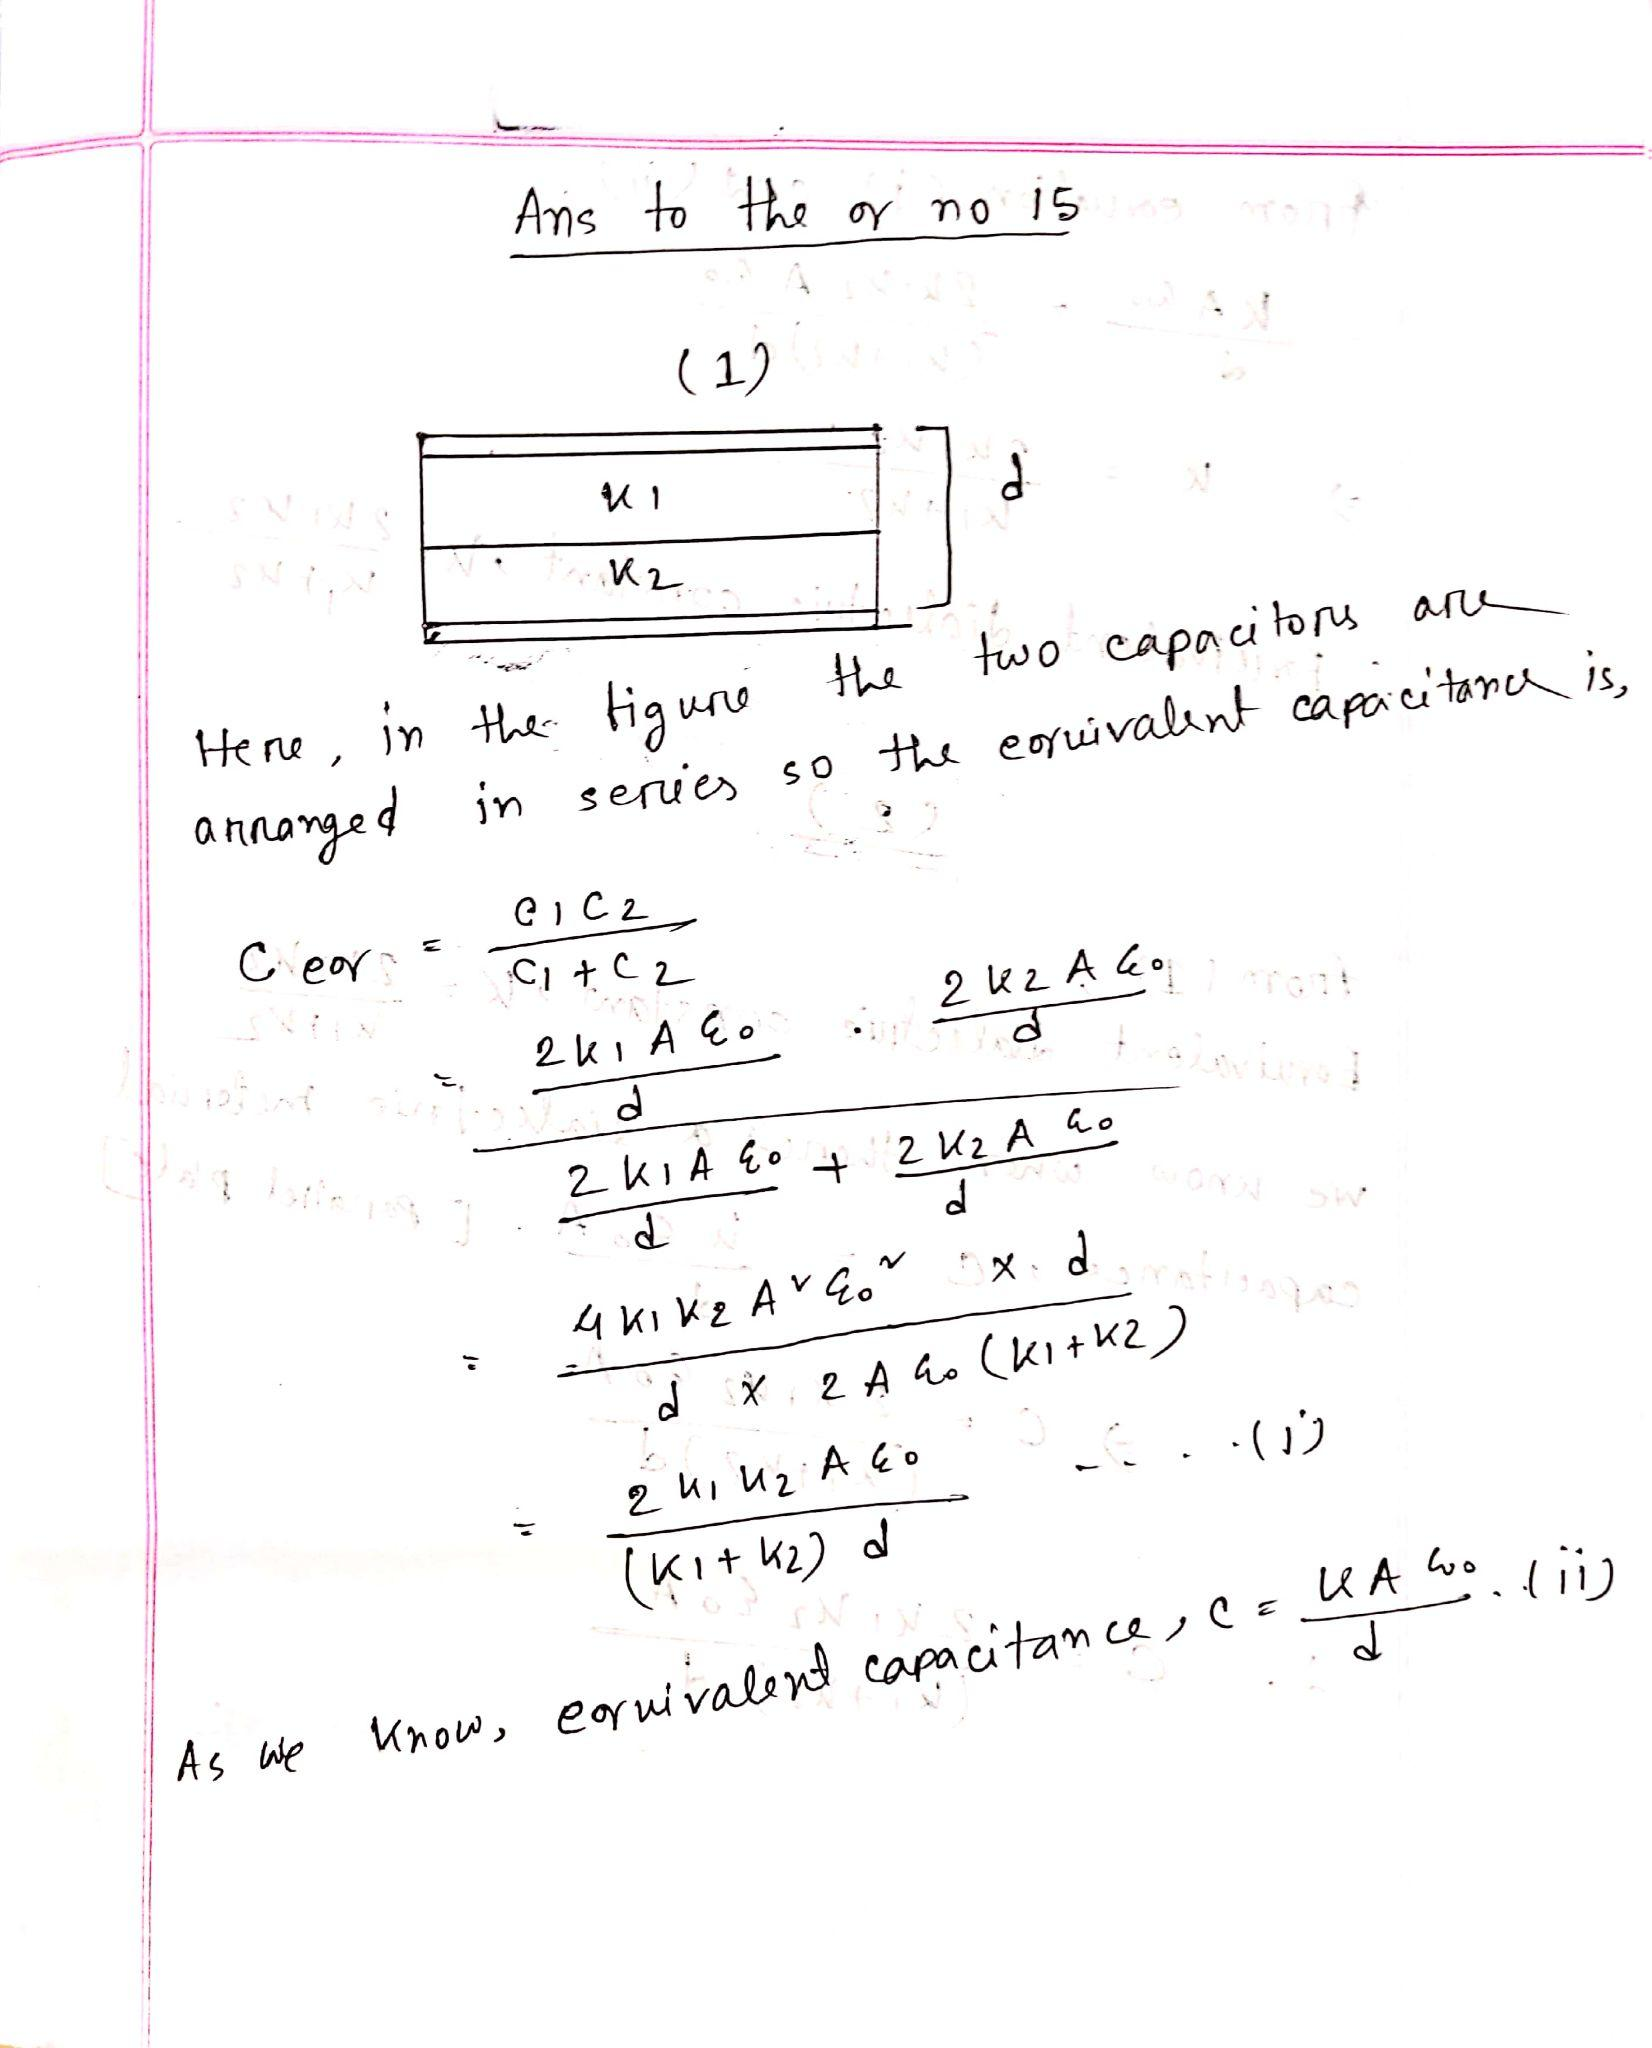 Ans to the qr no 15
(1)
K1
d
K2
Here, in the figure the two capacitors are
arranged in series so the eqruivalent capacitance is,
C eqr = C1C2 / C1 + C2
= 2k1Aε0/d . 2k2Aε0/d / 2K1Aε0/d + 2K2Aε0/d
= 4K1K2A²ε0² × d / d × 2Aε0(K1+K2)
= 2K1K2Aε0 / (K1+K2) d - - . . .(i)
As we know, eqruivalent capacitance, C = KAε0/d . (ii)